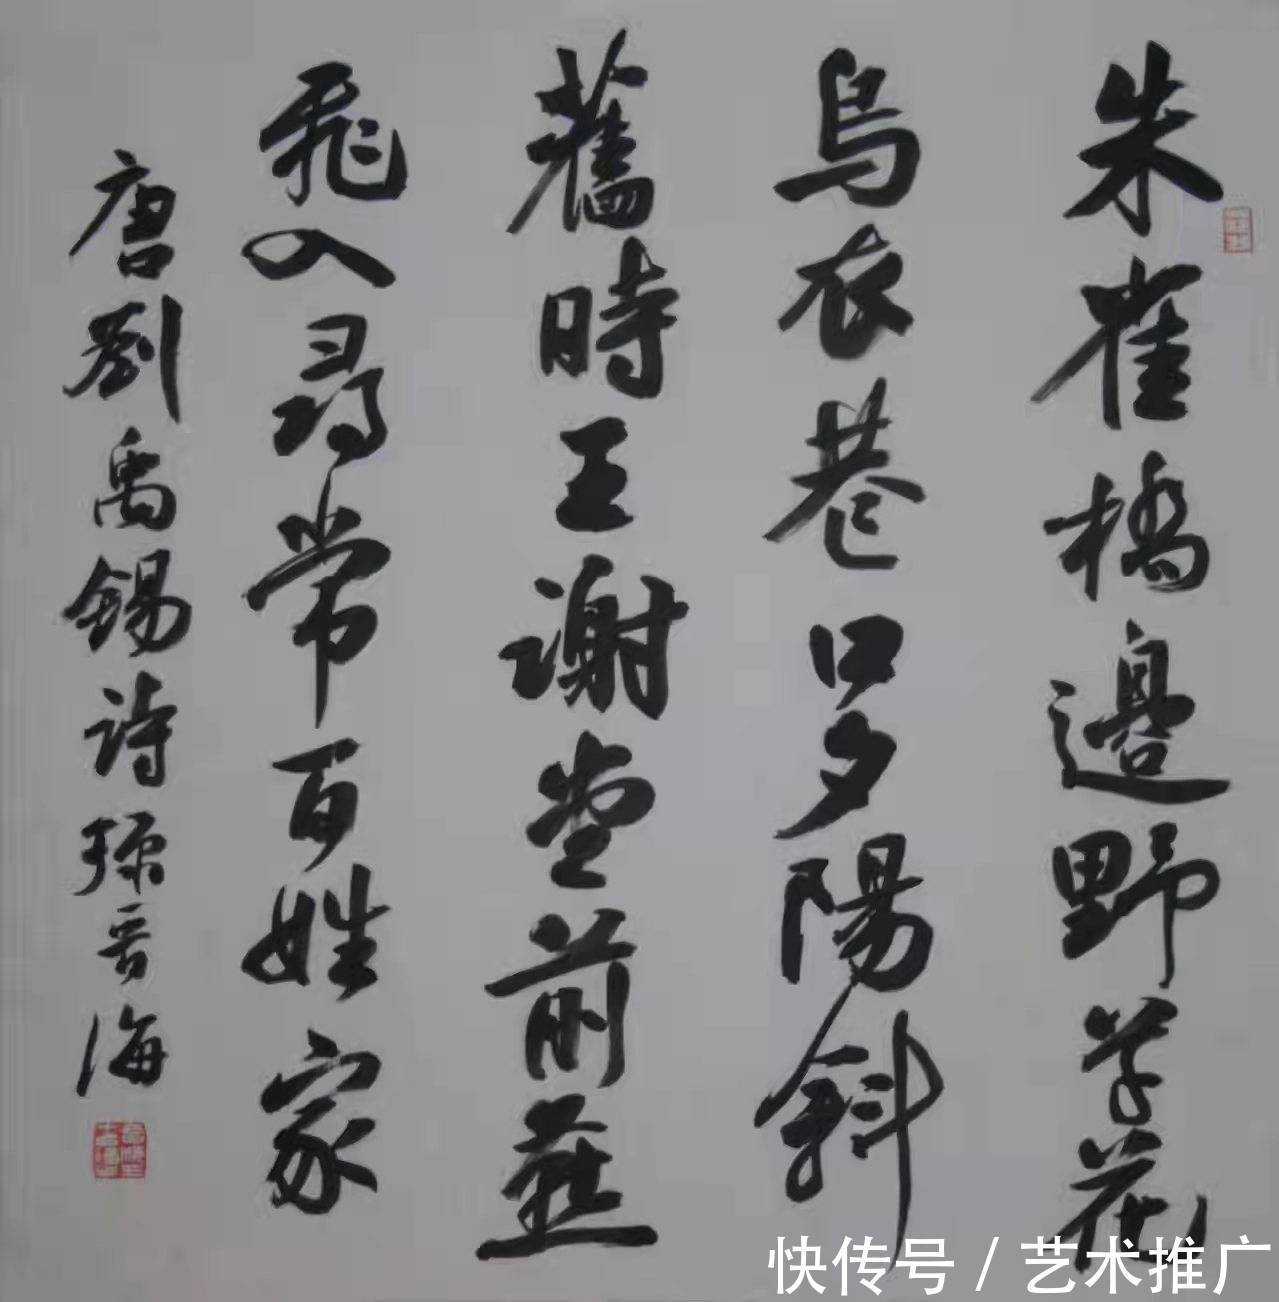 朱雀橋邊野草花
烏衣巷口夕陽斜
舊時王謝堂前燕
飛入尋常百姓家
唐劉禹錫詩 琼吾海
快传号 / 艺术推广